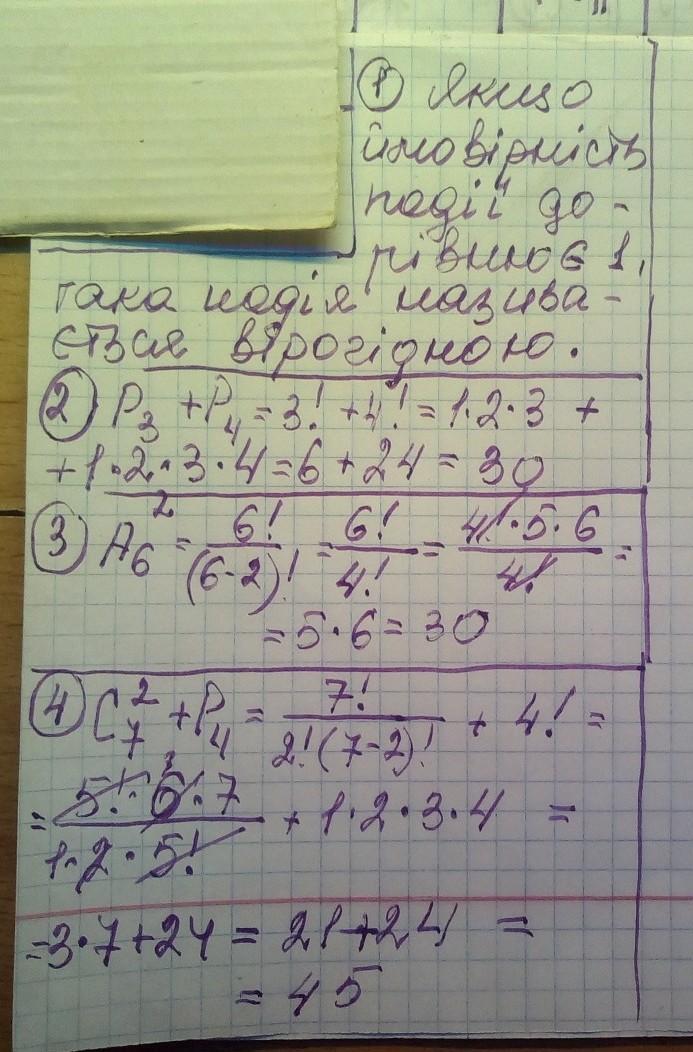 ① Якщо
ймовірність
події до-
рівнює 1,
така подія назива-
ється вірогідною.
② P₃ + P₄ = 3! + 4! = 1·2·3 +
+ 1·2·3·4 = 6 + 24 = 30
③ A₆² = 6!/(6-2)! = 6!/4! = 4!·5·6/4! =
= 5·6 = 30
④ C₇² + P₄ = 7!/2!(7-2)! + 4! =
= 5!·6·7/1·2·5! + 1·2·3·4 =
= 3·7 + 24 = 21 + 24 =
= 45